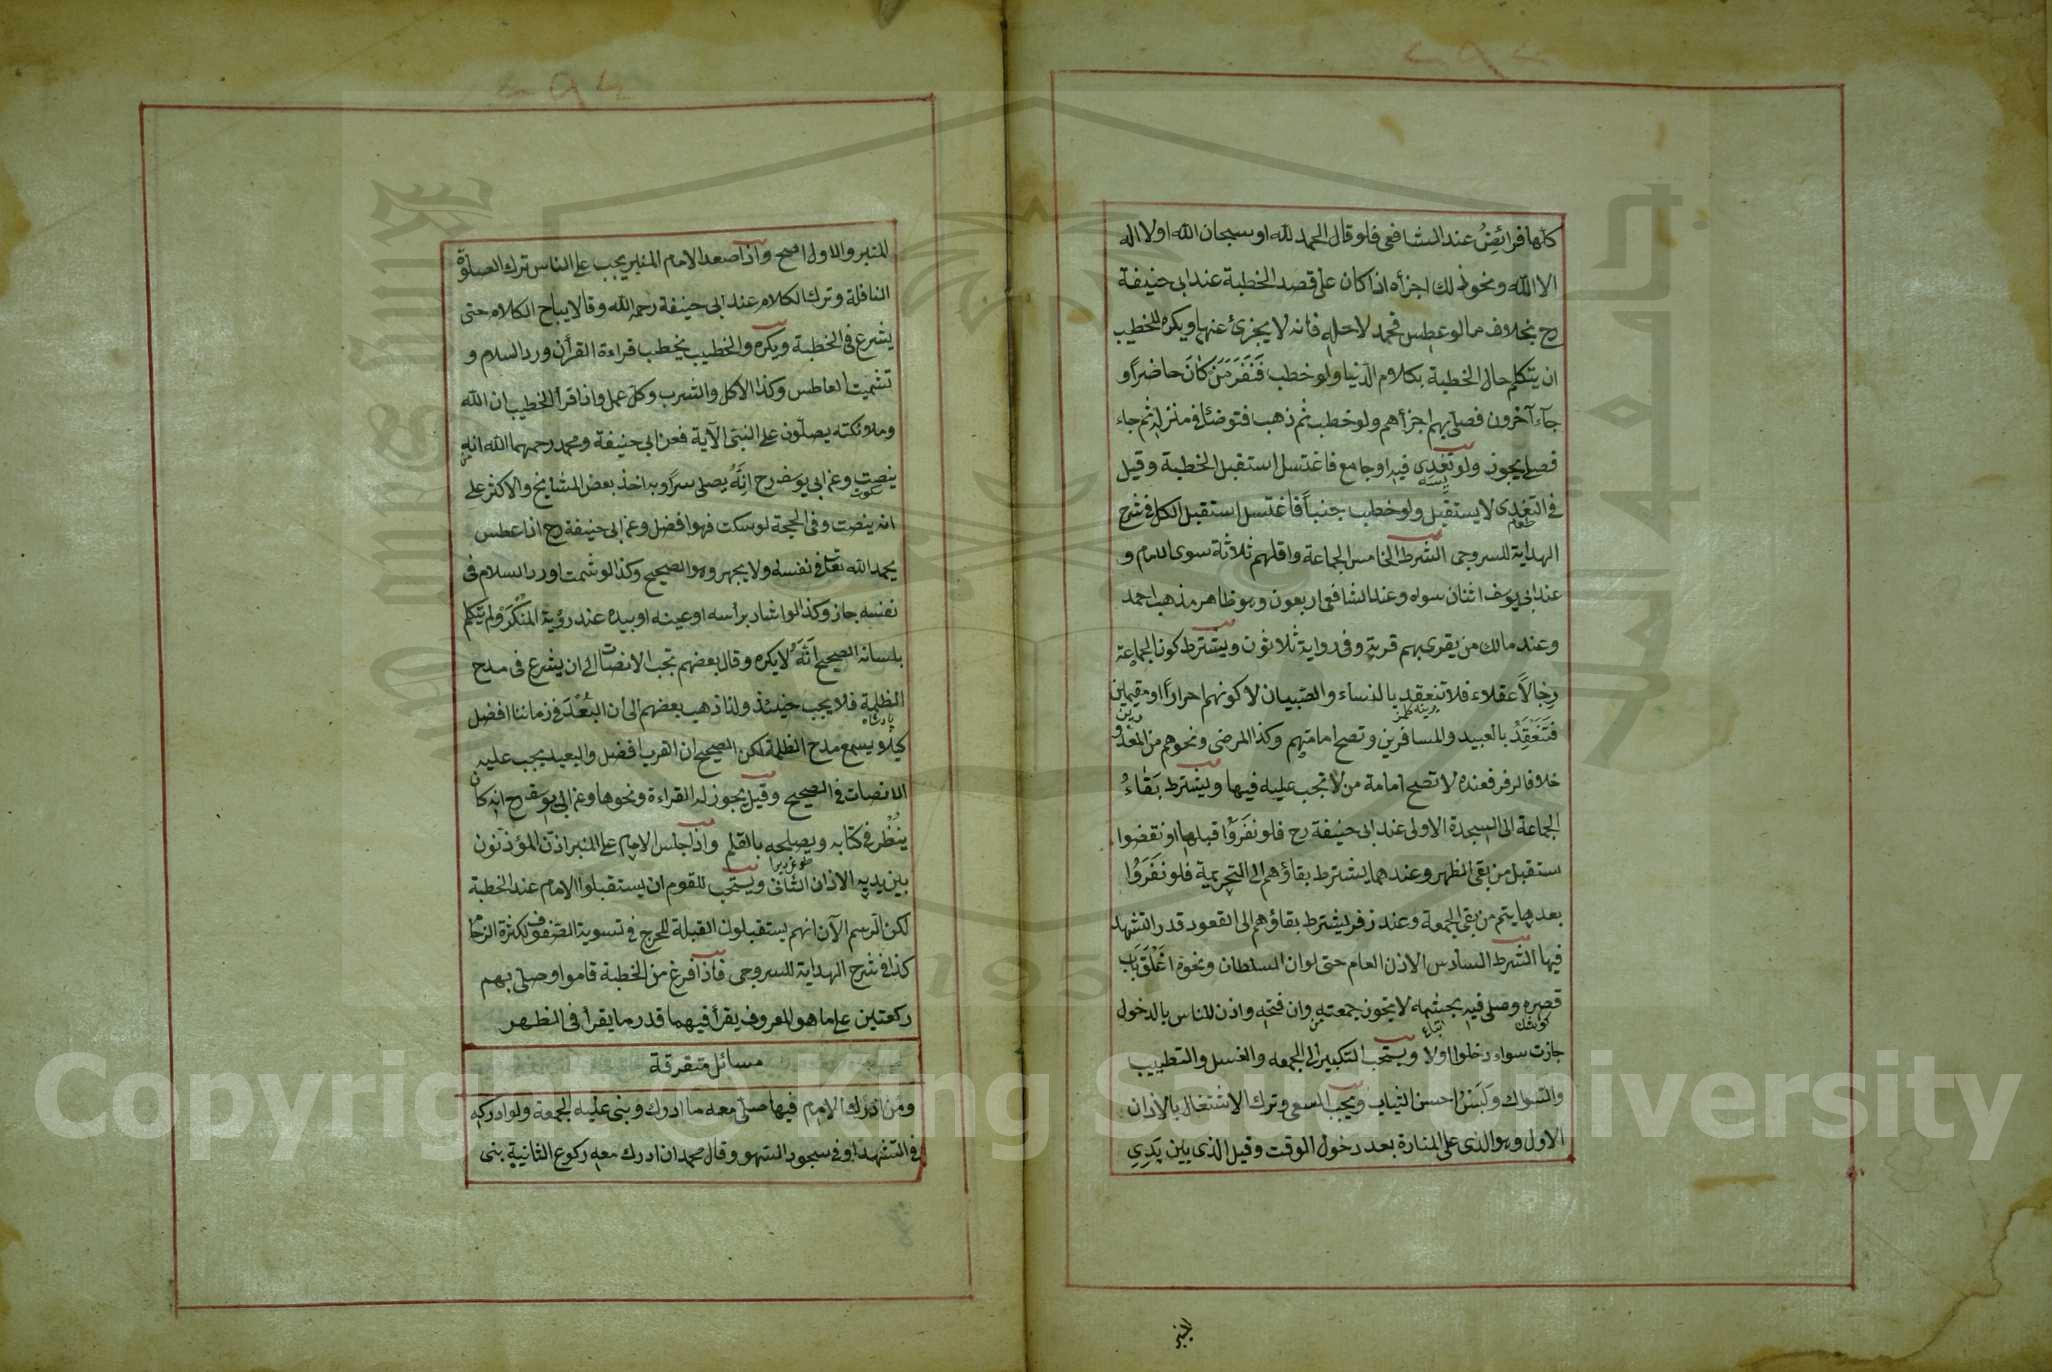 كلها فرائضُ عند الشافعى فلو قال الحمد لله او سبحان الله او لا اله
الا الله ونحو ذلك اجزأه اذا كان على قصد الخطبة عند ابى حنيفة
رح بخلاف ما لو عطس فحمد لاجله فانه لا يجزئ عنها ويكره للخطيب
ان يتكلم حال الخطبة بكلام الدنيا ولو خطب فَنَفَرَ مَنْ كَانَ حاضرًا و
جاء آخرون فصلى بهم اجزأهم ولو خطب ثم ذهب فتوضئ فى منزله ثم جاء
فصلى يجوز ولو تغدى فيه او جامع فاغتسل استقبل الخطبة وقيل
فى التغدى لا يستقبل ولو خطب جنباً فاغتسل استقبل الكل فى شرح
الهداية للسروجى الشرط الخامس الجماعة واقلهم ثلاثة سوى الامام و
عند ابى يوسف اثنان سواه وعند الشافعى اربعون وهو ظاهر مذهب احمد
وعند مالك من يقرى بهم قرية وفى رواية ثلاثون ويشترط كون الجماعة
رجالًا عقلاء فلا تنعقد بالنساء والصبيان لا كونهم احرارًا او مقيمين
فتنعقد بالعبيد والمسافرين وتصح امامتهم وكذا المرضى ونحوهم من المعذو
رين
خلافا لزفر فعنده لا تصح امامة من لا تجب عليه فيها ويشترط بَقَاءُ
الجماعة الى السجدة الاولى عند ابى حنيفة رح فلو نَفَرُوا قبلها او نقضوا
استقبل من بقى الظهر وعندهما يشترط بقاؤهم الى التحريمة فلو نَفَرُوا
بعدها يتم من بقى الجمعة وعند زفر يشترط بقاؤهم الى القعود قدر التشهد
فيها الشرط السادس الاذن العام حتى لو ان السلطان ونحوه اَغْلَقَ باب
قصره وصلى فيه بحشمه لا يجوز جمعته وان فتحه واذن للناس بالدخول
جازت سواء دخلوا او لا ويستحب التكبير الى الجمعه والغسل والتطييب
والسواك ولَبْسُ احسن الثياب ويجب السعى وترك الاشتغال بالاذان
الاول وهو الذى على المنارة بعد دخول الوقت وقيل الذى بين يَدَىِ
المنبر
المنبر والاول اصح واذا صعد الامام المنبر يجب على الناس ترك الصلوة
النافلة وترك الكلام عند ابى حنيفة رحمه الله وقالا يباح الكلام حتى
يشرع فى الخطبة ويكره والخطيب يخطب قراءة القرأن ورد السلام و
تشميت العاطس وكذا الاكل والشرب وكل عمل واذا قرأ الخطيب ان الله
وملائكته يصلون على النبى الآية فعن ابى حنيفة ومحمد رحمهما الله انه
ينصت وعن ابى يوسف رح انهُ يصلى سرًا وبه اخذ بعض المشايخ والاكثر على
انه ينصت وفى الحجة لو سكت فهو افضل وعن ابى حنيفة رح اذا عطس
يحمد الله تعالى فى نفسه ولا يجهر وهو الصحيح وكذا لو شمت او رد السلام فى
نفسه جاز وكذا لو اشار برأسه او عينه او بيده عند رؤية المُنْكَرِ ولم يتكلم
بلسانه الصحيح اَنَّهُ لا يكره وقال بعضهم تجب الانصات الى ان يشرع فى مدح
الظلمة فلا يجب حينئذ ولذا ذهب بعضهم الى ان البُعْدَ فى زماننا افضل
كيلا يسمع مدح الظلمة لكن الصحيح ان القرب افضل والبعيد يجب عليه
الانصات فى الصحيح وقيل يجوز له القراءة ونحوها وعن ابى يوسف رح انه كان
يَنْظُر فى كتابه ويصلحه بالقلم واذا جلس الامام على المنبر اذن المؤذنون
بين يديه الاذان الثانى ويستحب للقوم ان يستقبلوا الامام عند الخطبة
لكن الرسم الآن انهم يستقبلون القبلة للحرج فى تسوية الصفوف لكثرة الزحام
كذا فى شرح الهداية للسروجى فاذا فرغ من الخطبة قاموا وصلى بهم
ركعتين على ما هو المعروف يقرأ فيهما قدر ما يقرأ فى الظهر
مسائل متفرقة
ومن ادرك الامام فيها صلى معه ما ادرك وبنى عليه الجمعة ولو ادركه
فى التشهد او فى سجود السهو وقال محمد ان ادرك معه ركوع الثانية بنى
Copyright © King Saud University
1957